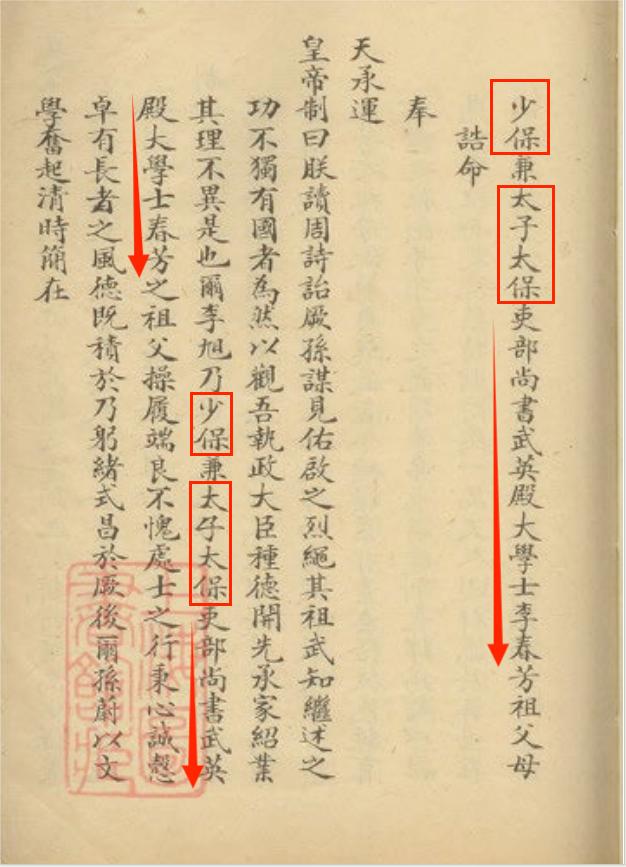 少保兼太子太保吏部尚書武英殿大學士李春芳祖父母
誥命
奉
天承運
皇帝制曰朕讀周詩詒厥孫謀見佑啟之烈繩其祖武知繼述之
功不獨有國者為然以觀吾執政大臣種德開先承家紹業
其理不異是也爾李旭乃少保兼太子太保吏部尚書武英
殿大學士春芳之祖父操履端良不愧處士之行秉心誠慤
卓有長者之風德既積於乃躬緒式昌於厥後爾孫蔚以文
學奮起清時簡在